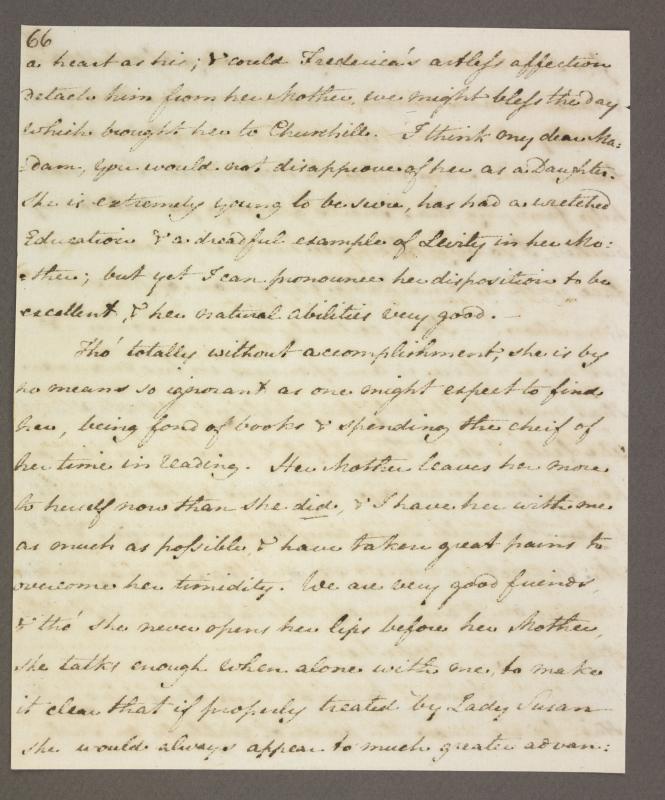 66
a heart as his; & could Frederica's artless affection
detach him from her Mother, we might bless the day
which brought her to Churchill. I think my dear Ma:
:dam, you would not disapprove of her as a Daughter.
She is extremely young to be sure, has had a wretched
Education & a dreadful example of Levity in her Mo:
:ther; but yet I can pronounce her disposition to be
excellent, & her natural abilities very good. —
Tho' totally without accomplishment, she is by
no means so ignorant as one might expect to find
her, being fond of books & spending the cheif of
her time in reading. Her Mother leaves her more
to herself now than she did, & I have her with me
as much as possible, & have taken great pains to
overcome her timidity. We are very good friends,
& tho' she never opens her lips before her Mother,
she talks enough when alone with me, to make
it clear that if properly treated by Lady Susan
she would always appear to much greater advan: